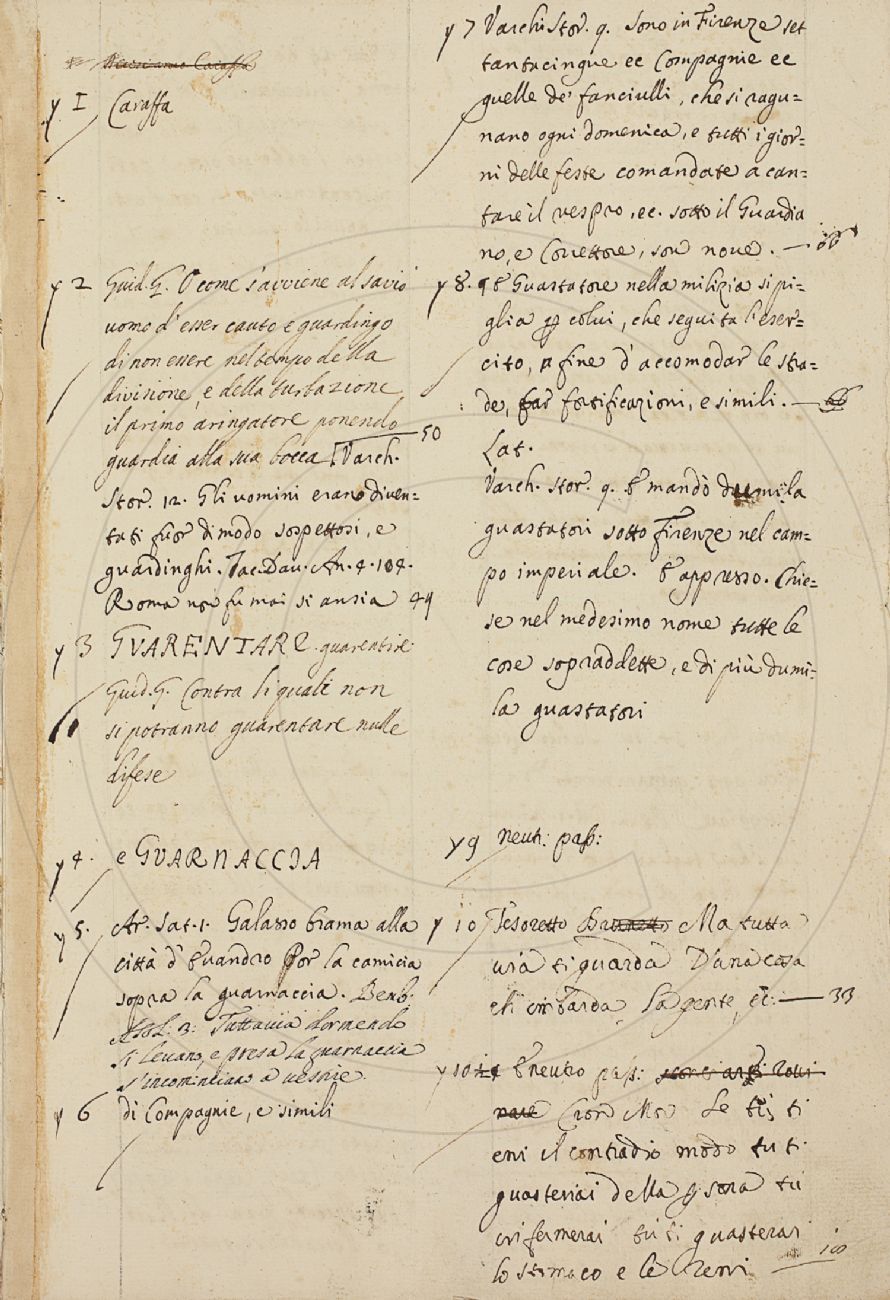 y I Caraffa
y 2 Guid. G. O come s'avviene al savio
uomo d'esser cauto e guardingo
di non essere nel tempo della
divisione, e della turbazione
il primo aringatore ponendo
guardia alla sua bocca Varch. 50
Stor. 12. Gli uomini erano diven=
tati fuor di modo sospettosi, e
guardinghi. Tac. Dav. An. 4. 104.
Roma non fu mai si ansia 49
y 3 GVARENTARE guarentire
Guid. G. Contra li quali non
si potranno guarentare nulle
difese
y 4. e GVARNACCIA
y 5. Ar. Sat. 1. Galasso brama alla
città d'Evandro Por la camicia
sopra la guarnaccia. Bemb.
Asol. 2. Tuttavia dormendo
si levano, e presa la guarnaccia
s'incominciano a vestire
y 6 di Compagnie, e simili
y 7 Varch. Stor. 9. Sono in Firenze set
tantacinque ec Compagnie ec
quelle de' fanciulli, che si ragu=
nano ogni domenica, e tutti i gior=
ni delle feste comandate a can=
tare il vespro, ec. sotto il Guardia
no, e Correttore, son nove. —
y 8. E Guastatore nella milizia si pi=
glia per colui, che seguita l'eser=
cito, a fine d'accomodar le stra=
de, far fortificazioni, e simili. —
Lat.
Varch. Stor. 9. E mandò dumila
guastatori sotto Firenze nel cam=
po imperiale. E appresso. Chie=
se nel medesimo nome tutte le
cose sopraddette, e di più dumi=
la guastatori
y 9 neut: pass:
y 10 Tesoretto Ma tutta
via ti guarda D'una cosa
ch' imbarda La gente, ec: — 33
y 10 E neutro pass:
Cron Mor Se ti
eni il contradio modo tu ti
guasterai della persona tu
infermerai tu ti guasterai
lo stomaco e le reni 100